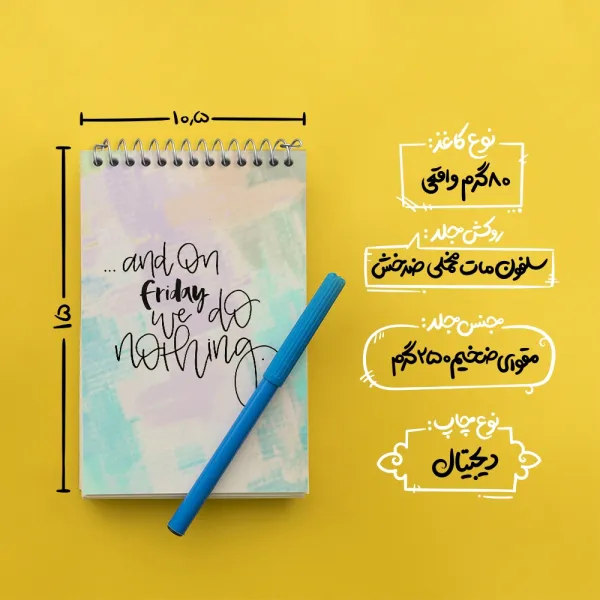 ۱۰,۵
۱۵
...and on
friday
we do
nothing.
نوع کاغذ:
۸۰گرم واقعی
روکش جلد:
سلفون مات مخملی ضدخش
جنس جلد:
مقوای ضخیم ۲۵۰گرم
نوع چاپ:
دیجیتال